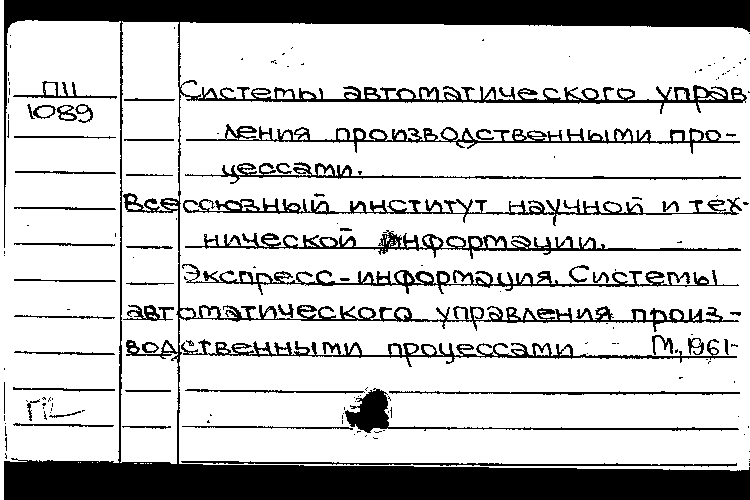 П11
1089
Системы автоматического управ-
ления производственными про-
цессами.
Всесоюзный институт научной и тех-
нической информации.
Экспресс-информация. Системы
автоматического управления произ-
водственными процессами М., 1961-